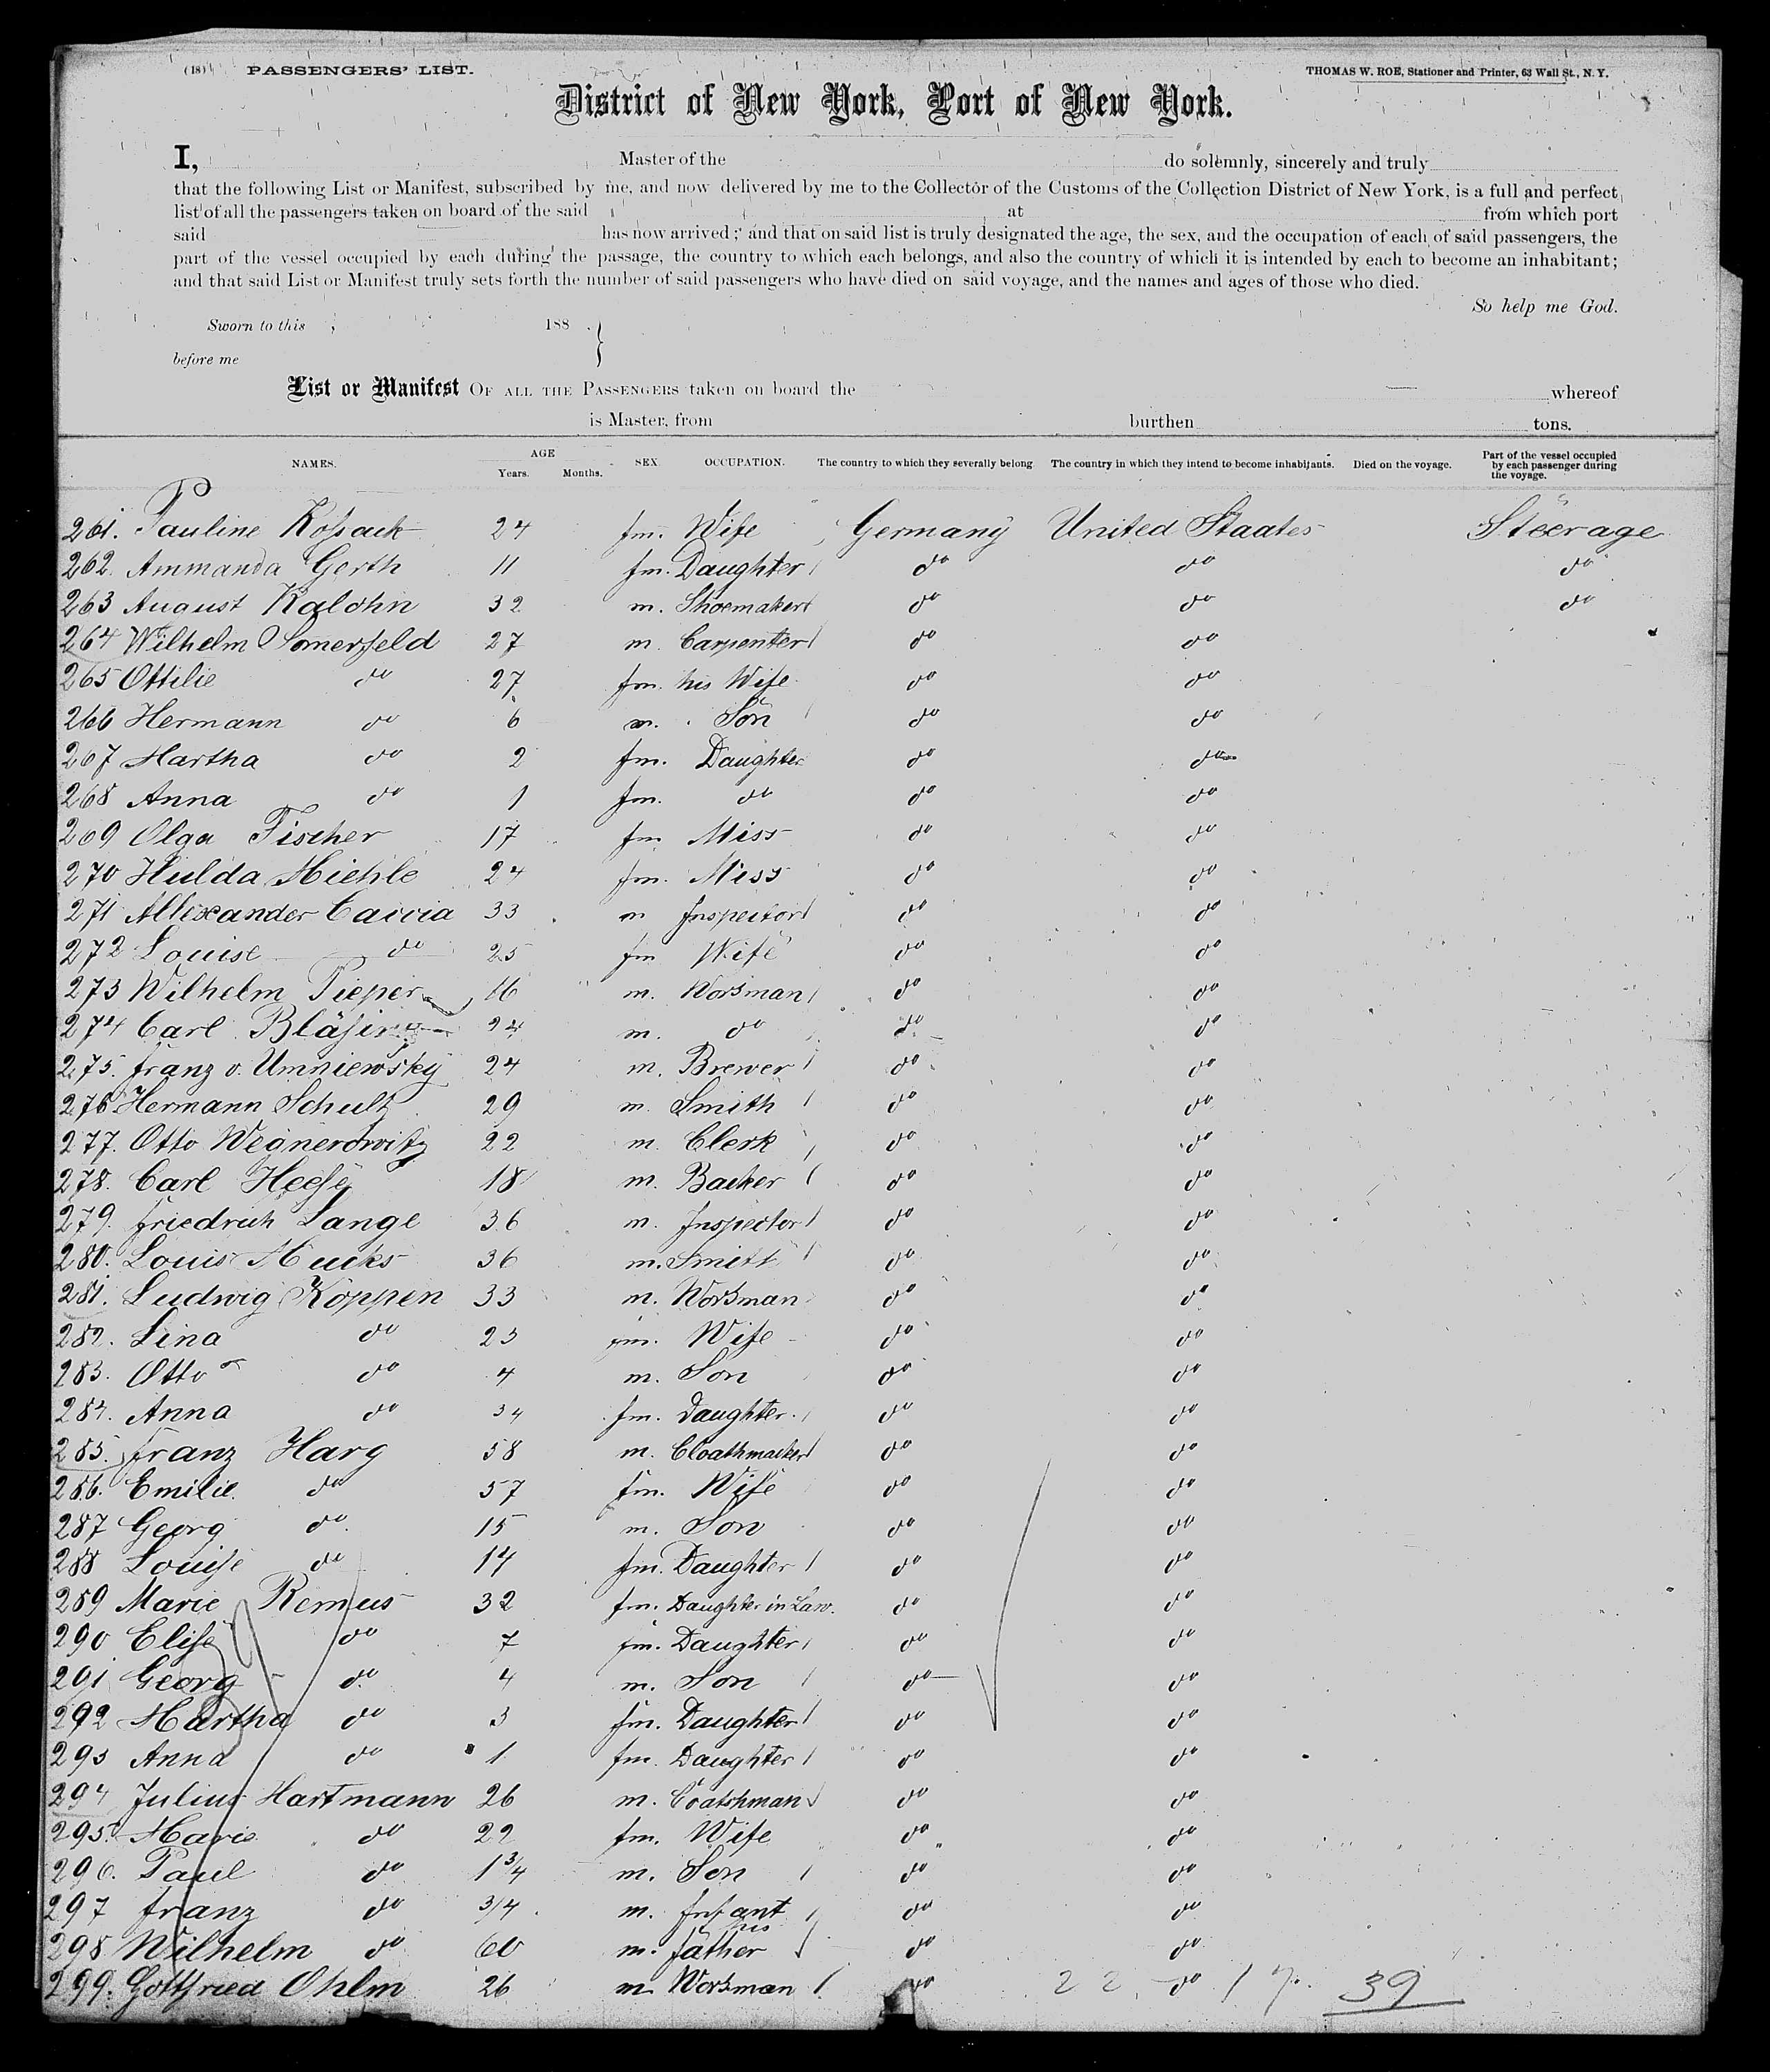 (18) PASSENGERS' LIST. THOMAS W. ROE, Stationer and Printer, 63 Wall St., N. Y.
District of New York, Port of New York.
I, Master of the do solemnly, sincerely and truly
that the following List or Manifest, subscribed by me, and now delivered by me to the Collector of the Customs of the Collection District of New York, is a full and perfect
list of all the passengers taken on board of the said at from which port
said has now arrived; and that on said list is truly designated the age, the sex, and the occupation of each of said passengers, the
part of the vessel occupied by each during the passage, the country to which each belongs, and also the country of which it is intended by each to become an inhabitant;
and that said List or Manifest truly sets forth the number of said passengers who have died on said voyage, and the names and ages of those who died.
So help me God.
Sworn to this 188
before me
List or Manifest OF ALL THE PASSENGERS taken on board the whereof
is Master, from burthen tons.
NAMES. AGE Years. Months. SEX. OCCUPATION. The country to which they severally belong The country in which they intend to become inhabitants. Died on the voyage. Part of the vessel occupied by each passenger during the voyage.
261. Pauline Koßack 24 fm. Wife Germany United Staates Steerage
262. Ammanda Gerth 11 fm. Daughter do do do
263 August Kalohn 32 m. Shoemaker do do do
264 Wilhelm Somerfeld 27 m. Carpenter do do
265 Ottilie do 27 fm. his Wife do do
266 Hermann do 6 m. Son do do
267 Martha do 2 fm. Daughter do do
268 Anna do 1 fm. do do do
269 Olga Fischer 17 fm Miss do do
270 Hulda Miehle 24 fm. Miss do do
271 Allexander 33 m Inspector do do
272 Louise do 25 fm Wife do do
273 Wilhelm Pieper 16 m. Worsman do do
274 Carl Bläsing 24 m. do do do
275. Franz v. Umniewsky 24 m. Brewer do do
276 Hermann Schulz 29 m. Smith do do
277. Otto Wegnerowitz 22 m. Clerk do do
278. Carl Heese 18 m. Backer do do
279. Friedrich Lange 36 m. Inspector do do
280. Louis Mucks 36 m. Smitt do do
281. Ludwig Köppen 33 m. Worsman do do
282. Lina do 23 fm. Wife do do
283. Otto do 4 m. Son do do
284. Anna do 3/4 fm. Daughter do do
285. Franz Harg 58 m. Cloathmacker do do
286. Emilie do 57 fm. Wife do do
287 Georg do 15 m. Son do do
288 Louise do 14 fm. Daughter do do
289 Marie Remus 32 fm. Daughter in Law. do do
290 Elise do 7 fm. Daughter do do
291 Georg do 4 m. Son do do
292 Martha do 3 fm. Daughter do do
293 Anna do 1 fm. Daughter do do
294 Julius Hartmann 26 m. Coatshman do do
295. Marie do 22 fm. Wife do do
296. Paul do 1 3/4 m. Son do do
297 Franz do 3/4 m. Infant do do
298 Wilhelm do 60 m. his father do do
299. Gottfried Ohlm 26 m. Worsman do 22 do 17. 39